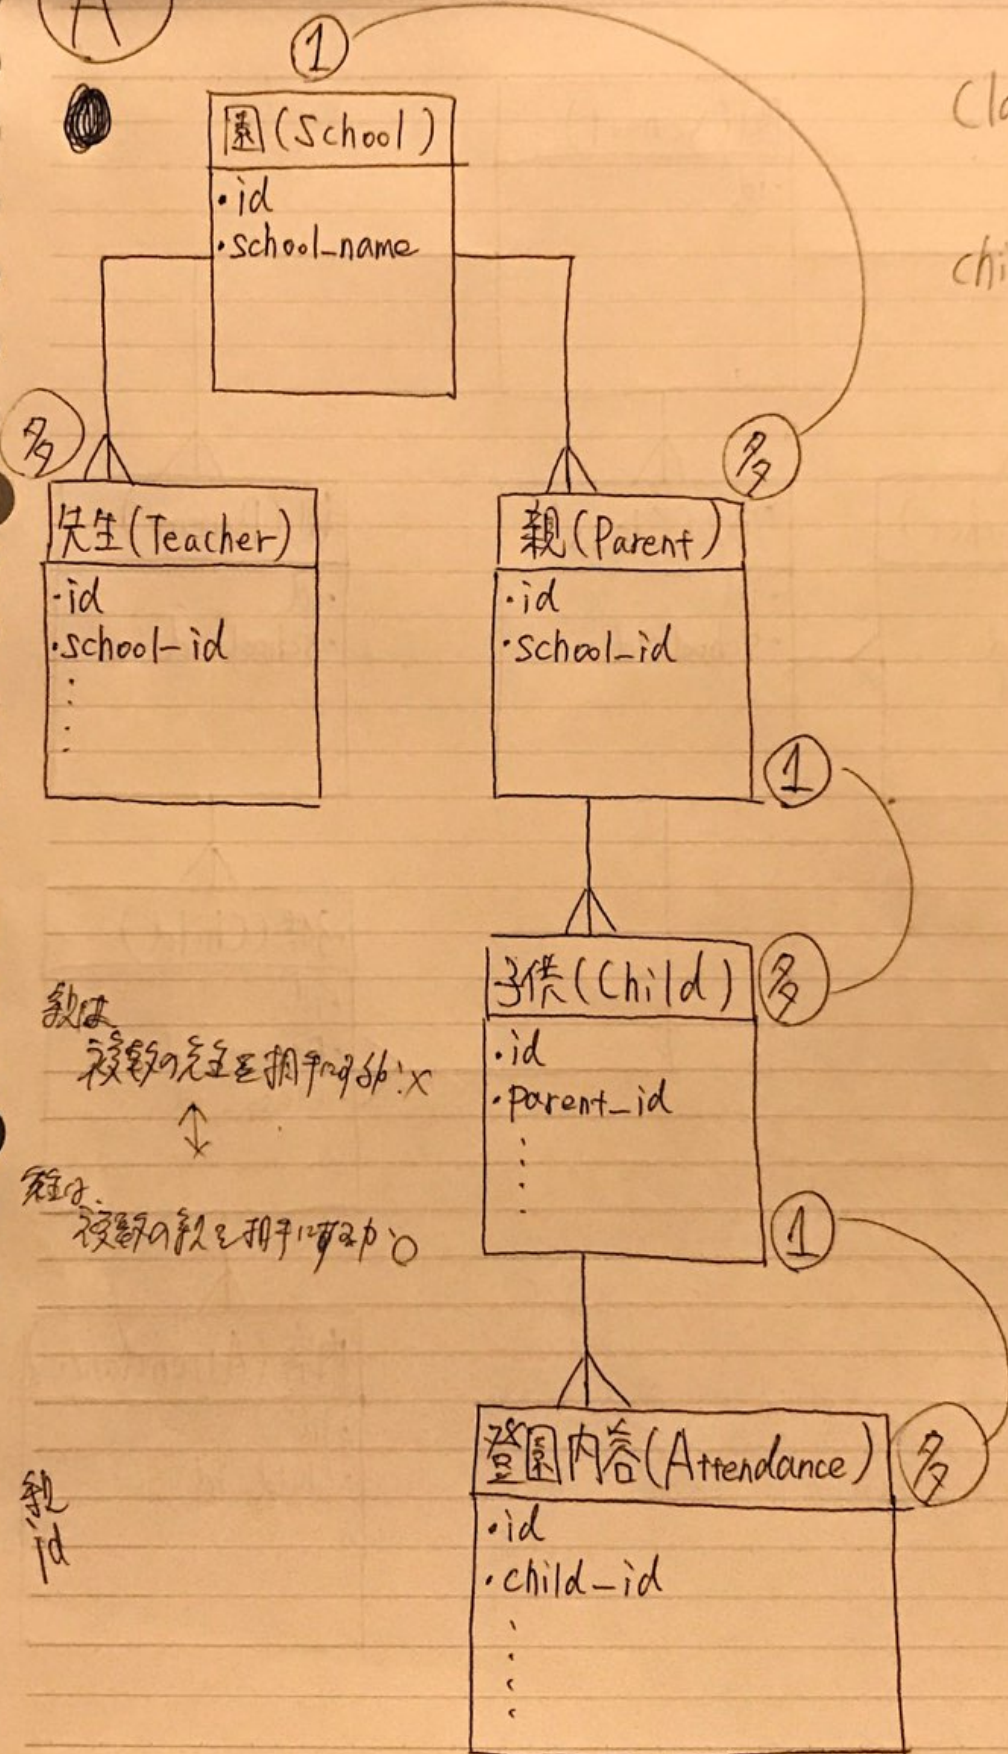 A
1
園(School)
・id
・school_name
Cla
chi
多
多
先生(Teacher)
・id
・school_id
親(Parent)
・id
・school_id
1
子供(Child)
多
・id
・parent_id
親は
複数の先生を相手にするか:×
↕
先生は、
複数の親を相手にするか:○
1
登園内容(Attendance)
多
・id
・child_id
親
id